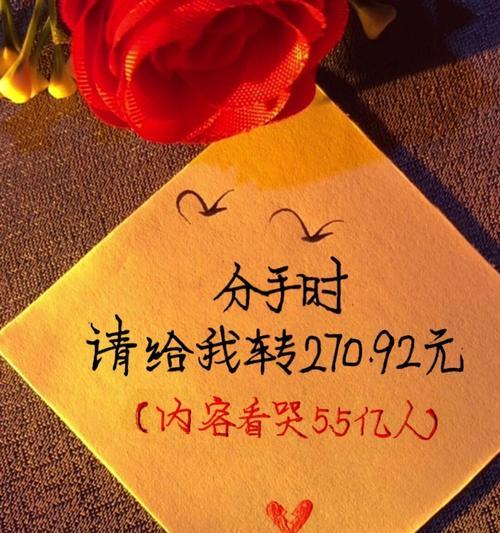 分手时
请给我转270.92元
(内容看哭5.5亿人)